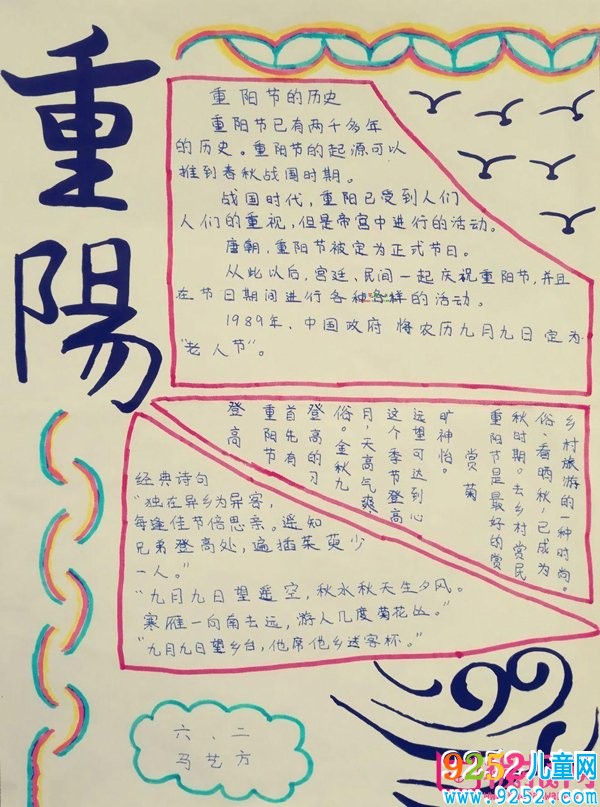 重陽
重阳节的历史
重阳节已有两千多年
的历史。重阳节的起源可以
推到春秋战国时期。
战国时代，重阳已受到人们
人们的重视，但是帝宫中进行的活动。
唐朝，重阳节被定为正式节日。
从此以后，宫廷、民间一起庆祝重阳节，并且
在节日期间进行各种各样的活动。
1989年、中国政府将农历九月九日定为
“老人节”。
登高
重阳节
首先有
登高的习
俗。金秋九
月，天高气爽
这个季节登高
远望可达到心
旷神怡。
赏菊
重阳节是最好的赏
秋时期。去乡村赏民
俗、看晒秋，已成为
乡村旅游的一种时尚。
经典诗句
“独在异乡为异客，
每逢佳节倍思亲。遥知
兄弟登高处，遍插茱萸少
一人。”
“九月九日望遥空，秋水秋天生夕风。
寒雁一向南去远，游人几度菊花丛。”
“九月九日望乡台，他席他乡送客杯。”
六、二
马艺方
9252儿童网
www.9252.com